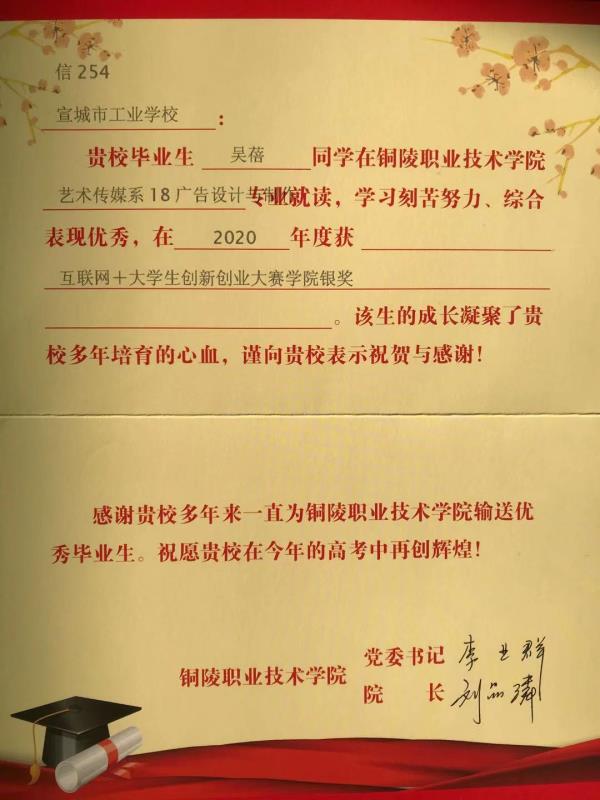 信 254
宣城市工业学校：
贵校毕业生 吴蓓 同学在铜陵职业技术学院
艺术传媒系 18 广告设计与制作专业就读，学习刻苦努力、综合
表现优秀，在 2020 年度获
互联网＋大学生创新创业大赛学院银奖
。该生的成长凝聚了贵
校多年培育的心血，谨向贵校表示祝贺与感谢！
感谢贵校多年来一直为铜陵职业技术学院输送优
秀毕业生。祝愿贵校在今年的高考中再创辉煌！
党委书记 李业群
铜陵职业技术学院
院 长